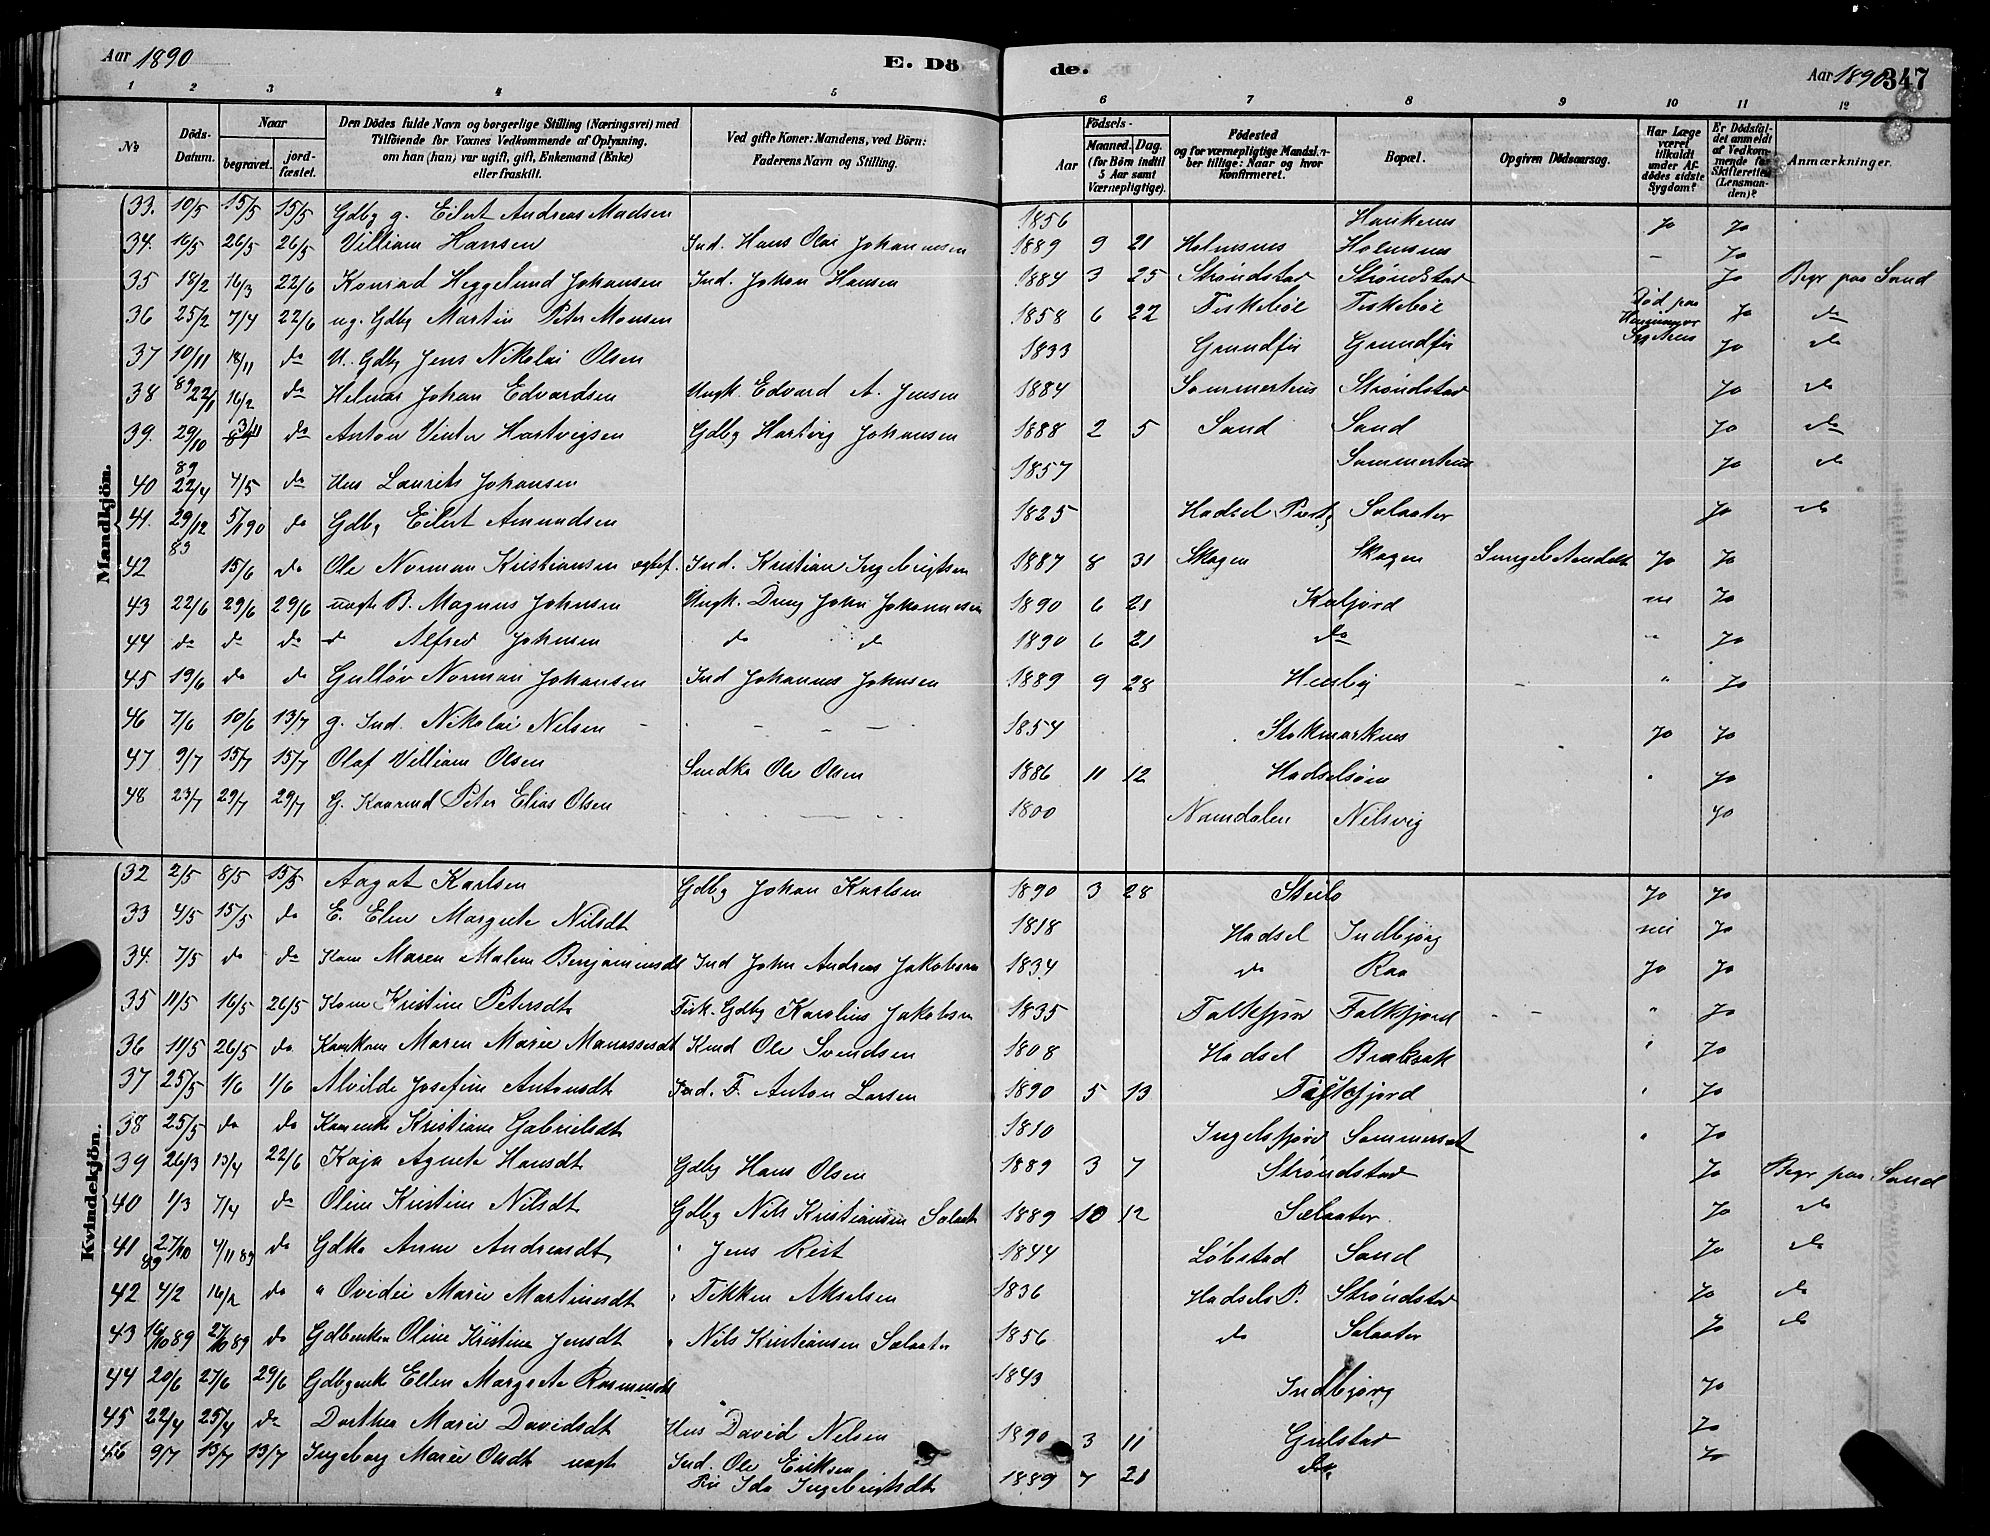 Aar 1890 E. Dö de. Aar 1890 347
1 2 3 4 5 6 7 8 9 10 11 12
No Döds-Datum. Naar begravet. jordfæstet. Den Dödes fulde Navn og borgerlige Stilling (Næringsvei) med Tilföiende for Voxnes Vedkommende af Oplysning, om han (hun) var ugift, gift, Enkemand (Enke) eller fraskilt. Ved gifte Koner: Mandens, ved Börn: Faderens Navn og Stilling. Födsels- Aar Maaned. Dag. (for Börn indtil 5 Aar samt Værnepligtige). Födested og for værnepligtige Mandskaber tillige: Naar og hvor Konfirmeret. Bopæl. Opgiven Dödsaarsag. Har Læge været tilkaldt under Afdödes sidste Sygdom? Er Dödsfaldet anmeldt af Vedkommende for Skifteretten (Lensmanden)? Anmærkninger.
Mandkjön.
33. 10/5 15/5 15/5 Gdbg g. Eilert Andreas Madsen 1856 Haukenes Jo Jo
34. 16/5 26/5 26/5 Villiam Hansen Ind. Hans Olai Johannesen 1889 9 21 Holmsnes Holmsnes – Jo
35 18/2 16/3 22/6 Konrad Heggelund Johansen Ind. Johan Hansen 1884 3 25 Strøndstad Strøndstad Jo Begr paa Sand
36 25/2 7/4 22/6 ug. Gdbg Martin Peter Monsen 1858 6 22 Fiskebøl Fiskebøl Død paa Jo do
37 10/11 18/11 do U. Gdbg Jens Nikolai Olsen 1833 Grundfør Grundfør Jo do
38 89 22/11 16/2 do Helmer Johan Edvardsen Ungk. Edvard A. Jensen 1884 Sommerhus Strøndstad Jo do
39. 29/10 3/11 do Anton Vinter Hartvigsen Gdbg Hartvig Johansen 1888 2 5 Sand Sand Jo do
40 89 22/4 4/5 do Hus Laurits Johansen 1857 Jo do
41. 29/12 5/1 90 do Gdbg Eilert Amundsen 1825 Hadsel Sælaater Jo do
42 15/6 do Ole Norman Kristiansen Ind. Kristian Ingebrigtsen 1887 8 31 Skagen Skagen Jo Jo
43 22/6 29/6 29/6 uægte B. Magnus Johnsen Ungk. Dreng John Johannesen 1890 6 21 Kaljord nei Jo
44 do do do d Alfred Johnsen do do 1890 6 21 do " Jo
45 19/6 do do Gulløv Norman Johansen Ind Johannes Johnsen 1889 9 28 " Jo
46 7/6 10/6 13/7 g. Ind. Nikolai Nilsen 1854 Stokmarknes Jo Jo
47 9/7 15/7 15/7 Olaf Villiam Olsen Ole Olsen 1886 11 12 Hadseløen Jo
48 23/7 29/7 29/7 G. Kaarmd Peter Elias Olsen 1800 Namdalen Nilsvig Jo
Kvindekjön.
32 2/5 8/5 15/5 Aagot Karlsen Gdbg Johan Karlsen 1890 3 28 Steilo Jo Jo
33 4/5 15/5 do E. Elen Margrete Nilsdt 1818 Hadsel Indbjørg nei Jo
34. 7/5 do do Kone Maren Malene Benjaminsdt Ind John Andreas Jakobsen 1834 do Raa Jo Jo
35 11/5 16/5 26/5 Kone Kristine Petersdt Fisk. Gdbg Karolius Jakobsen 1835 Falkfjord Falkfjord " Jo
36 11/5 26/5 do Maren Marie Manassesdt Kmd Ole Svendsen 1808 Hadsel " Jo
37 25/5 1/6 1/6 Alvilde Josefine Antonsdt Ind. F. Anton Larsen 1890 5 13 Falkfjord " Jo
38 25/5 do do Kaarenke Kristiane Gabrielsdt 1810 Ingelsfjord Sommerset " Jo
39 26/3 13/4 22/6 Kaja Agnete Hansdt Gdbg Hans Olsen 1889 3 7 Strøndstad Jo Begr paa Sand
40 1/3 7/4 do Oline Kristine Nilsdt Gdbg Nils Kristiansen Sælaat 1889 10 12 Sælaater Jo do
41 27/10 89 4/11 89 do Gdko Anne Andreasdt " Jens Rist 1844 Løbstad Sand Jo do
42 4/2 16/2 do " Ovidie Marie Martinusdt " Fikken Akselsen 1836 Hadsels P. Strøndstad Jo do
43 16/10 89 27/10 89 do Oline Kristina Jensdt " Nils Kristiansen Sælaater 1856 do Sælaater Jo do
44 20/6 27/6 29/6 Gdbgenke Ellen Margrete Rasmusdt 1843 Indbjørg Jo
45 22/4 25/4 do Dorthea Marie Davidsdt Hus David Nilsen 1890 3 11 Gulstad Jo
46 9/7 13/7 13/7 Ingeborg Marie Olsdt uægt Ind. Ole Eriksen 1889 7 21 do Jo
Pie Ida Ingebrigtsdt